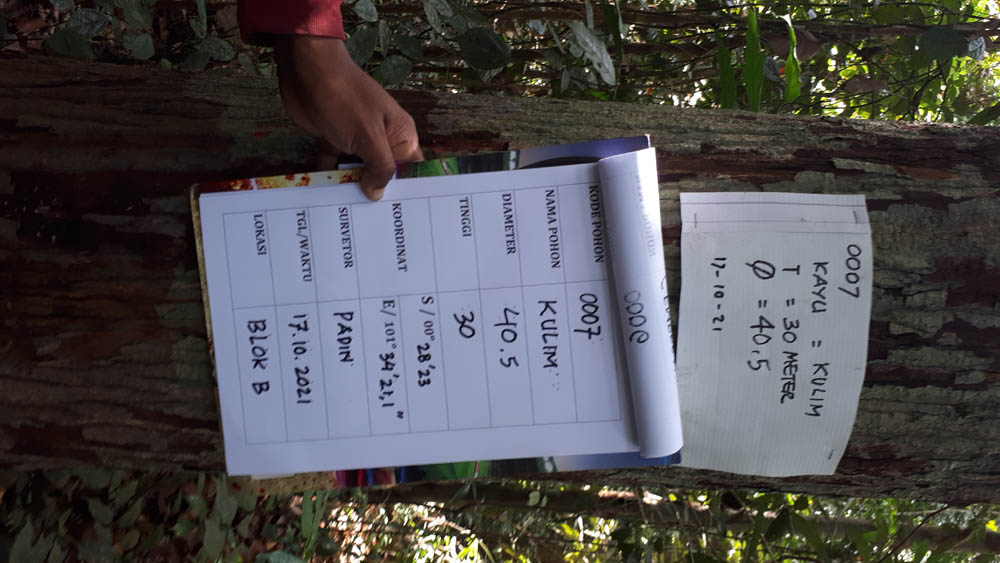 0007
KAYU = KULIM
T = 30 METER
Ø = 40.5
17-10-21
NAMA POHON
000
KODE POHON 0007
NAMA POHON KULIM
DIAMETER 40.5
TINGGI 30
KOORDINAT S / 00° 28'23
E/ 101° 34'21,1"
SURVETOR PADIN
TGL/WAKTU 17.10.2021
LOKASI BLOK B